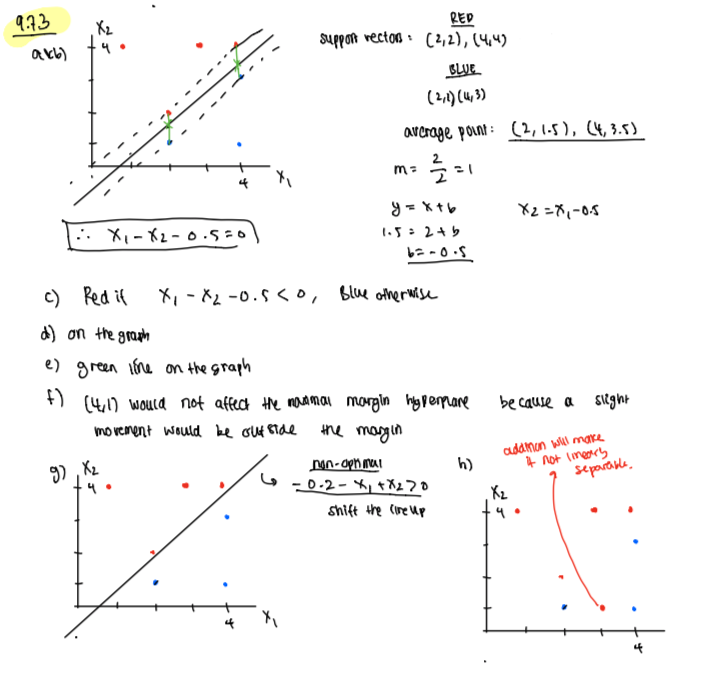 9.7.3
a&b)
X₂
4
4
X₁
RED
support vectors : (2,2), (4,4)
BLUE
(2,1) (4,3)
average point: (2, 1.5), (4, 3.5)
m = 2/2 = 1
y = x + b
x₂ = x₁ - 0.5
1.5 = 2 + b
b = - 0.5
∴ X₁ - X₂ - 0.5 = 0
c) Red if X₁ - X₂ - 0.5 < 0, Blue otherwise
d) on the graph
e) green line on the graph
f) (4,1) would not affect the maximal margin hyperplane because a slight
movement would be outside the margin
g)
X₂
4
4
X₁
non-optimal
- 0.2 - X₁ + X₂ > 0
shift the line up
h)
addition will make
it not linearly
separable.
X₂
4
4